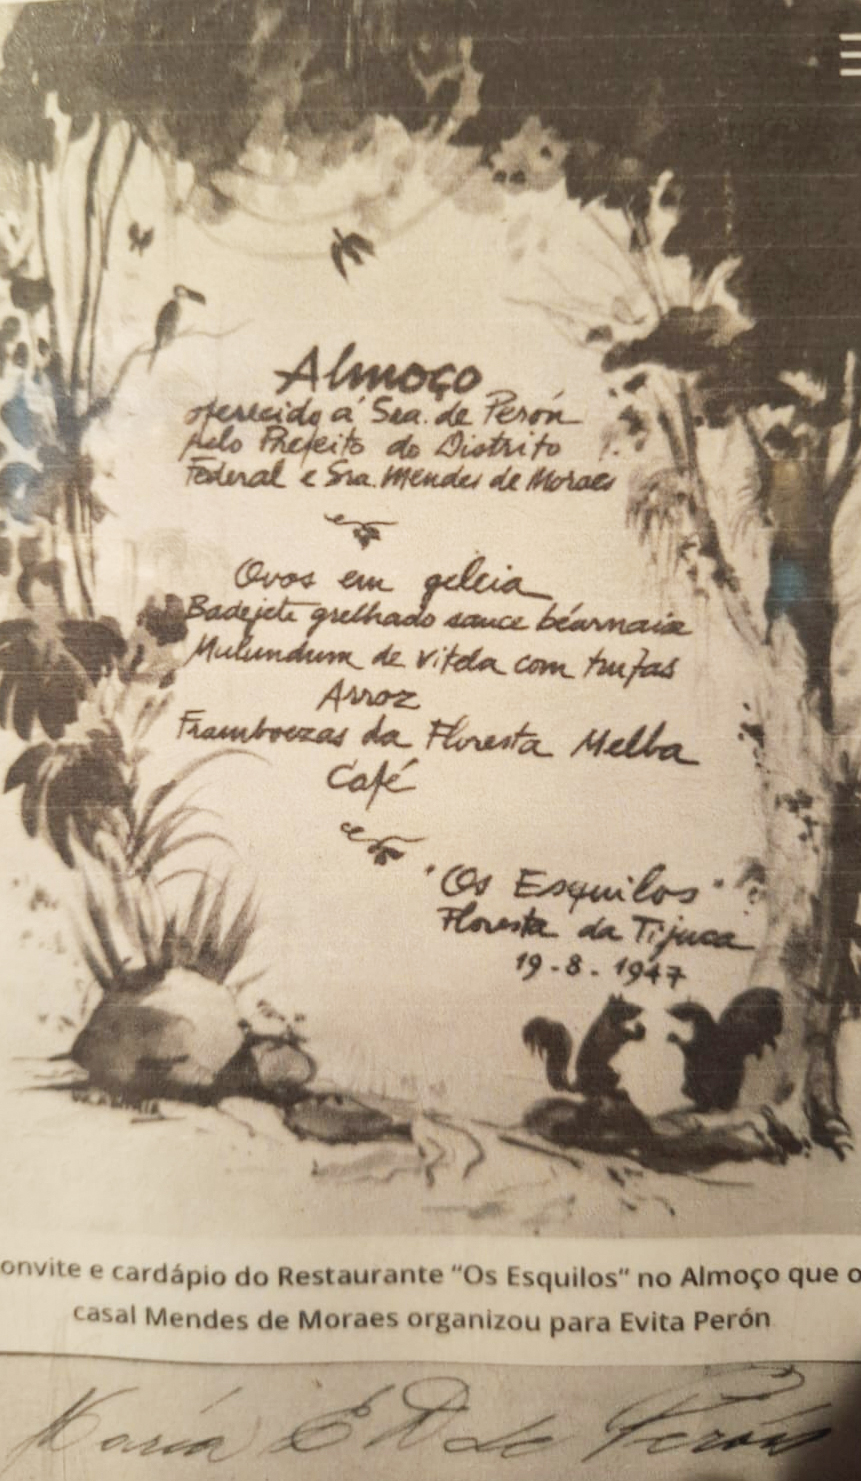 Almoço
oferecido á Sra. de Perón
pelo Prefeito do Distrito
Federal e Sra. Mendes de Moraes
Ovos em geleia
Badejete grelhado sauce béarnaia
Mulundum de vitela com trufas
Arroz
Framboezas da Floresta Melba
Café
"Os Esquilos"
Floresta da Tijuca
19-8-1947
onvite e cardápio do Restaurante “Os Esquilos” no Almoço que o
casal Mendes de Moraes organizou para Evita Perón
María E D de Perón